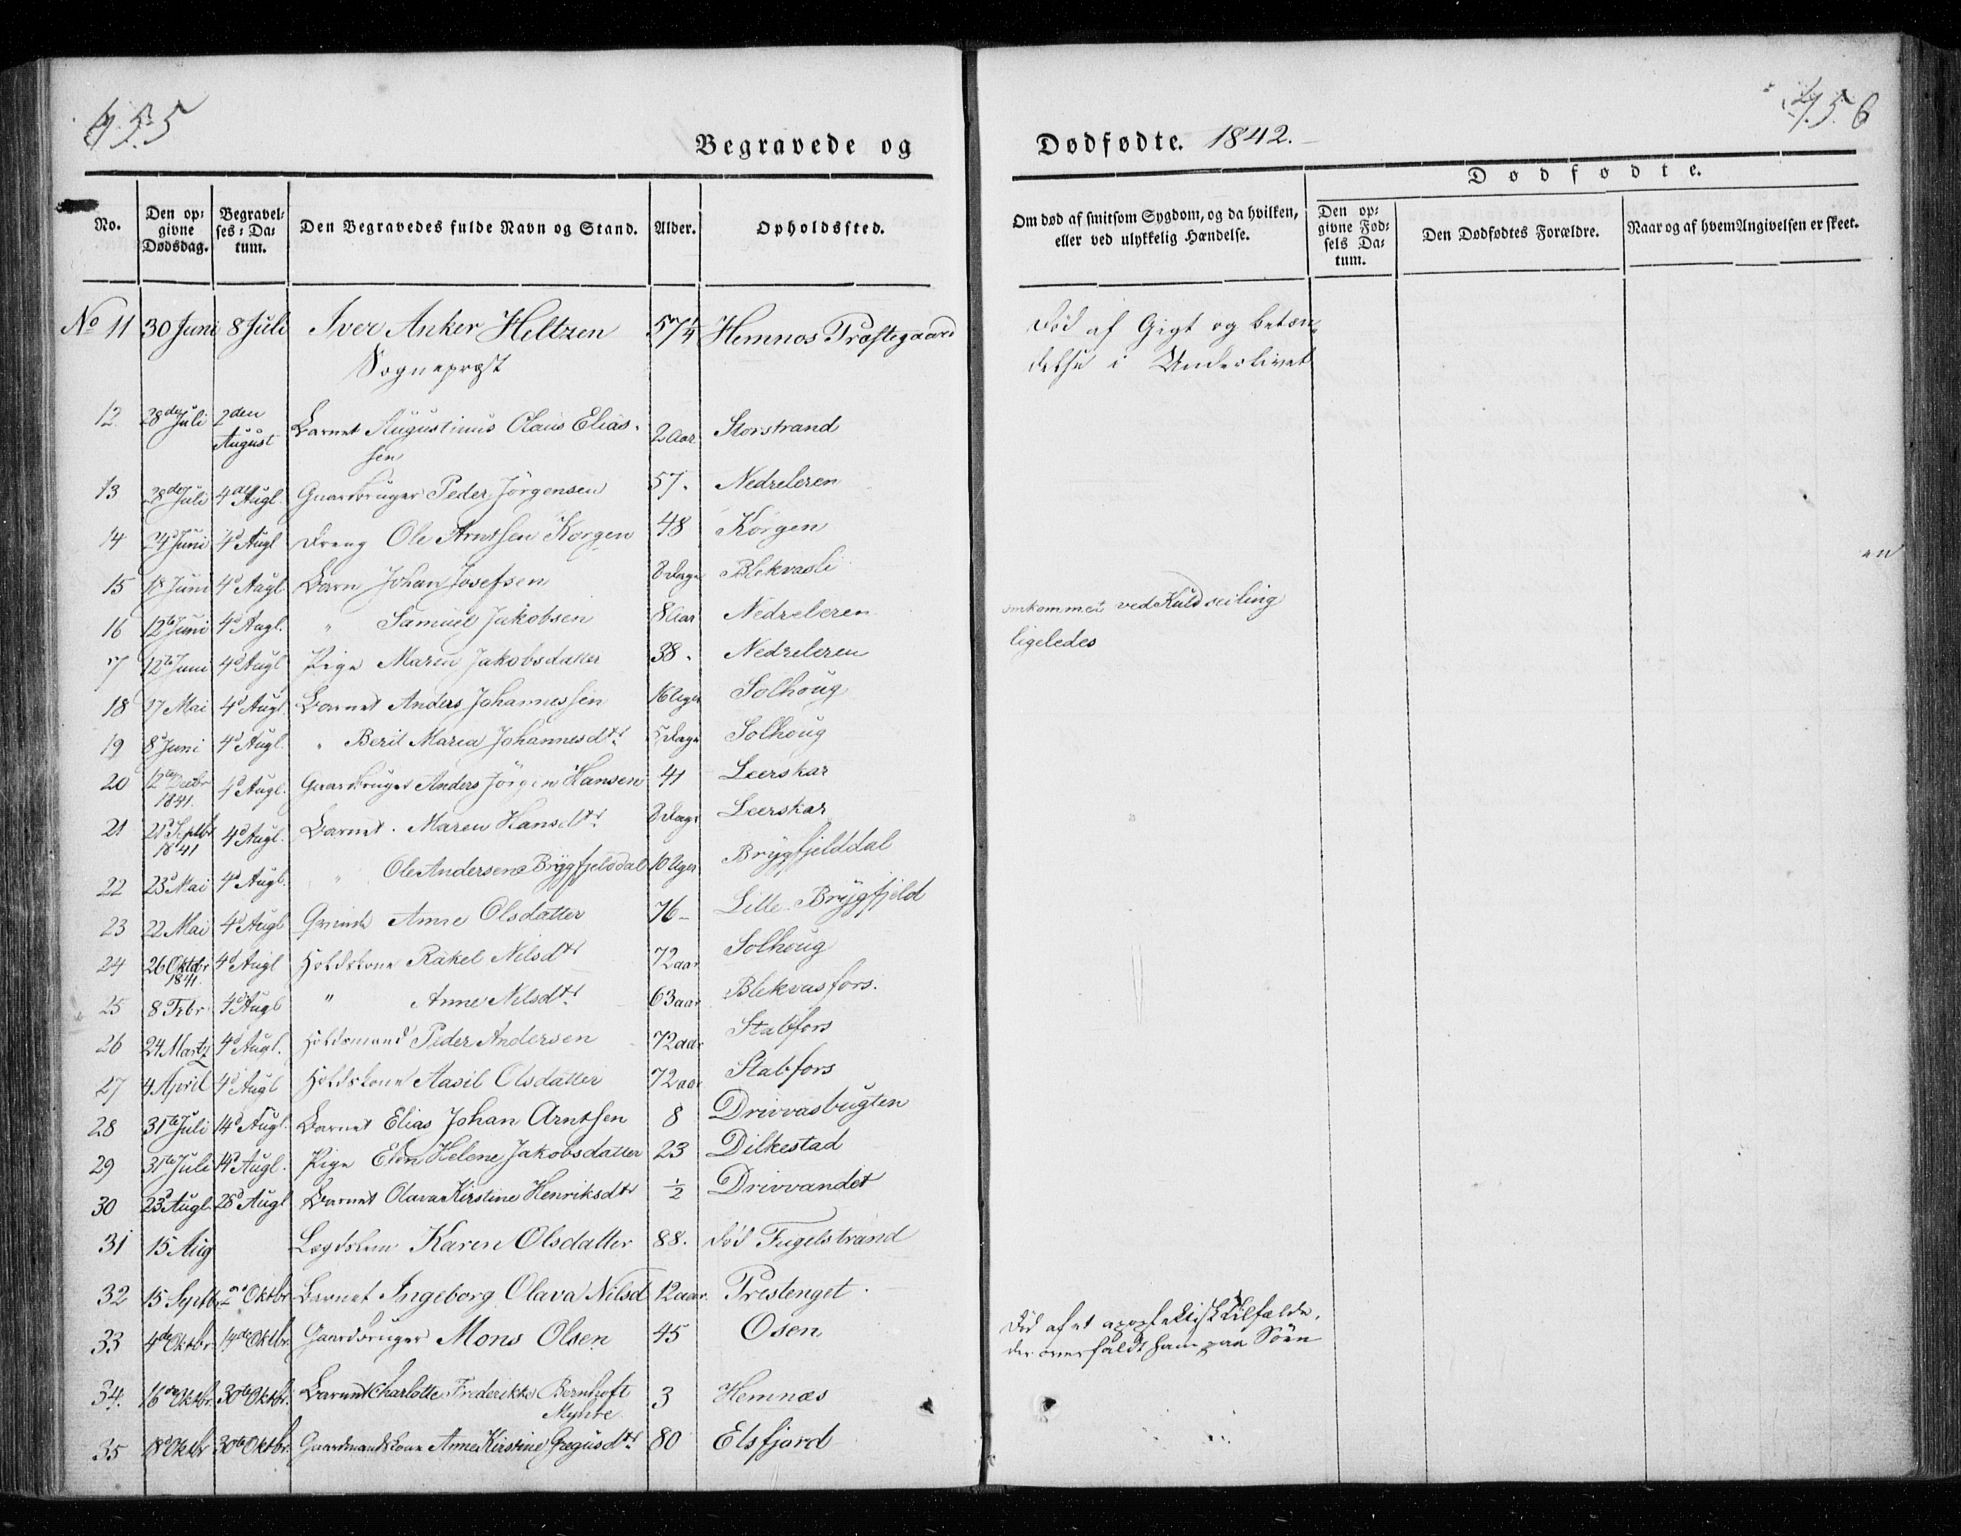 455
456
Begravede og Dødfødte. 1842.
Dødfødte.
No.
Den opgivne Dødsdag.
Begravelses-Datum.
Den Begravedes fulde Navn og Stand.
Alder.
Opholdssted.
Om død af smitsom Sygdom, og da hvilken, eller ved ulykkelig Hændelse.
Den opgivne Fødsels Datum.
Den Dødfødtes Forældre.
Naar og af hvem Angivelsen er skeet.
No 11 30 Juni 8 Juli Iver Anker Heltzen 57 Hemnæs Præstegaard Død af Gigt og betæn-
Sognepræst delse i Underlivet
12 28de Juli 2den August Barnet Augustinus Olaus Elias- 2 Aar Storstrand
sen
13 28de Juli 4de Augl. Gaardbruger Peder Jörgensen 57. Nedreleren
14 24 Juni 4d Augl Dreng Ole Arntsen Korgen 48 Korgen
15 18 Juni 4d Augl Barn Johan Josefsen 8 Dage Blekvasli
16 12te Juni 4d Augl. " Samuel Jakobsen 8 Aar Nedreleren omkommet ved Kuldseiling
17 12te Juni 4d Augl Pige Maren Jakobsdatter 38. Nedreleren ligeledes
18 17 Mai 4d Augl. Barnet Anders Johannessen 16 Uger Solhoug
19 8d Juni 4d Augl. " Beril Marea Johannesdtr 5 Dage Solhoug
20 12te Decbr 1841. 4d Augl. Gaardbruger Anders Jörgen Hansen 41 Leerskar
21 21d Septbr 1841 4d Augl. Barnet. Maren Hansdtr. 8 Dage Leerskar
22 23d Mai 4d Augl. " Ole Andersen Bryggfjelddal 10 Uger Brygfjelddal
23 22 Mai 4d Augl Qvinde Anne Olsdatter 76 - Lille Brygfjeld
24 26 Oktbr 1841. 4d Augl Holdskone Rakel Nilsdtr 72 aar Solhoug
25 8 Febr 4d Augl " Anne Nilsdtr. 63 aar Blekvasfors.
26 24 Martz 4d Augl. Holdsmand Peder Andersen 72 aar Stabfors
27 4 April 4d Augl Holdskone Aasil Olsdatter 72 aar Stabfors
28 31te Juli 14d Augl. Barnet Elias Johan Arntsen 8 Drivvasbugten
29 31te Juli 14d Augl. Pige Elen Helene Jakobsdatter 23 Dilkestad
30 23d Augl. 28d Augl Barnet Olava Kirstine Henriksdtr ½ Drivvandet
31 15 Aug Lægdslem Karen Olsdatter 88. død Fugelstrand
32 15 Septb. 2d Oktbr Barnet Ingeborg Olava Nilsd 12 aar. Prestenget
33 4de Oktbr. 14de Oktbr. Gaardbruger Mons Olsen 45 Osen Død af et apoplektisk Tilfælde,
der overfaldt ham paa Söen
34. 16de Oktbr. 30te Oktbr. Barnet Charlotte Frederikke Bernhoft 3 Hemnæs
Myhre
35 18d Oktbr 30te Oktbr. Gaardmandskone Anne Kirstine Gregusdtr. 80 Elsfjord